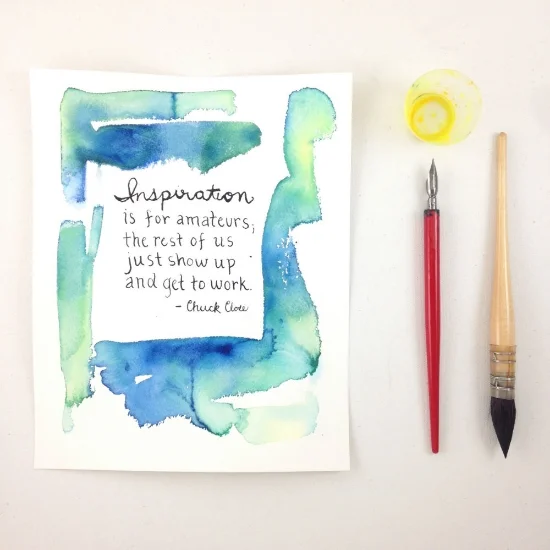 Inspiration
is for amateurs;
the rest of us
just show up
and get to work.
- Chuck Close